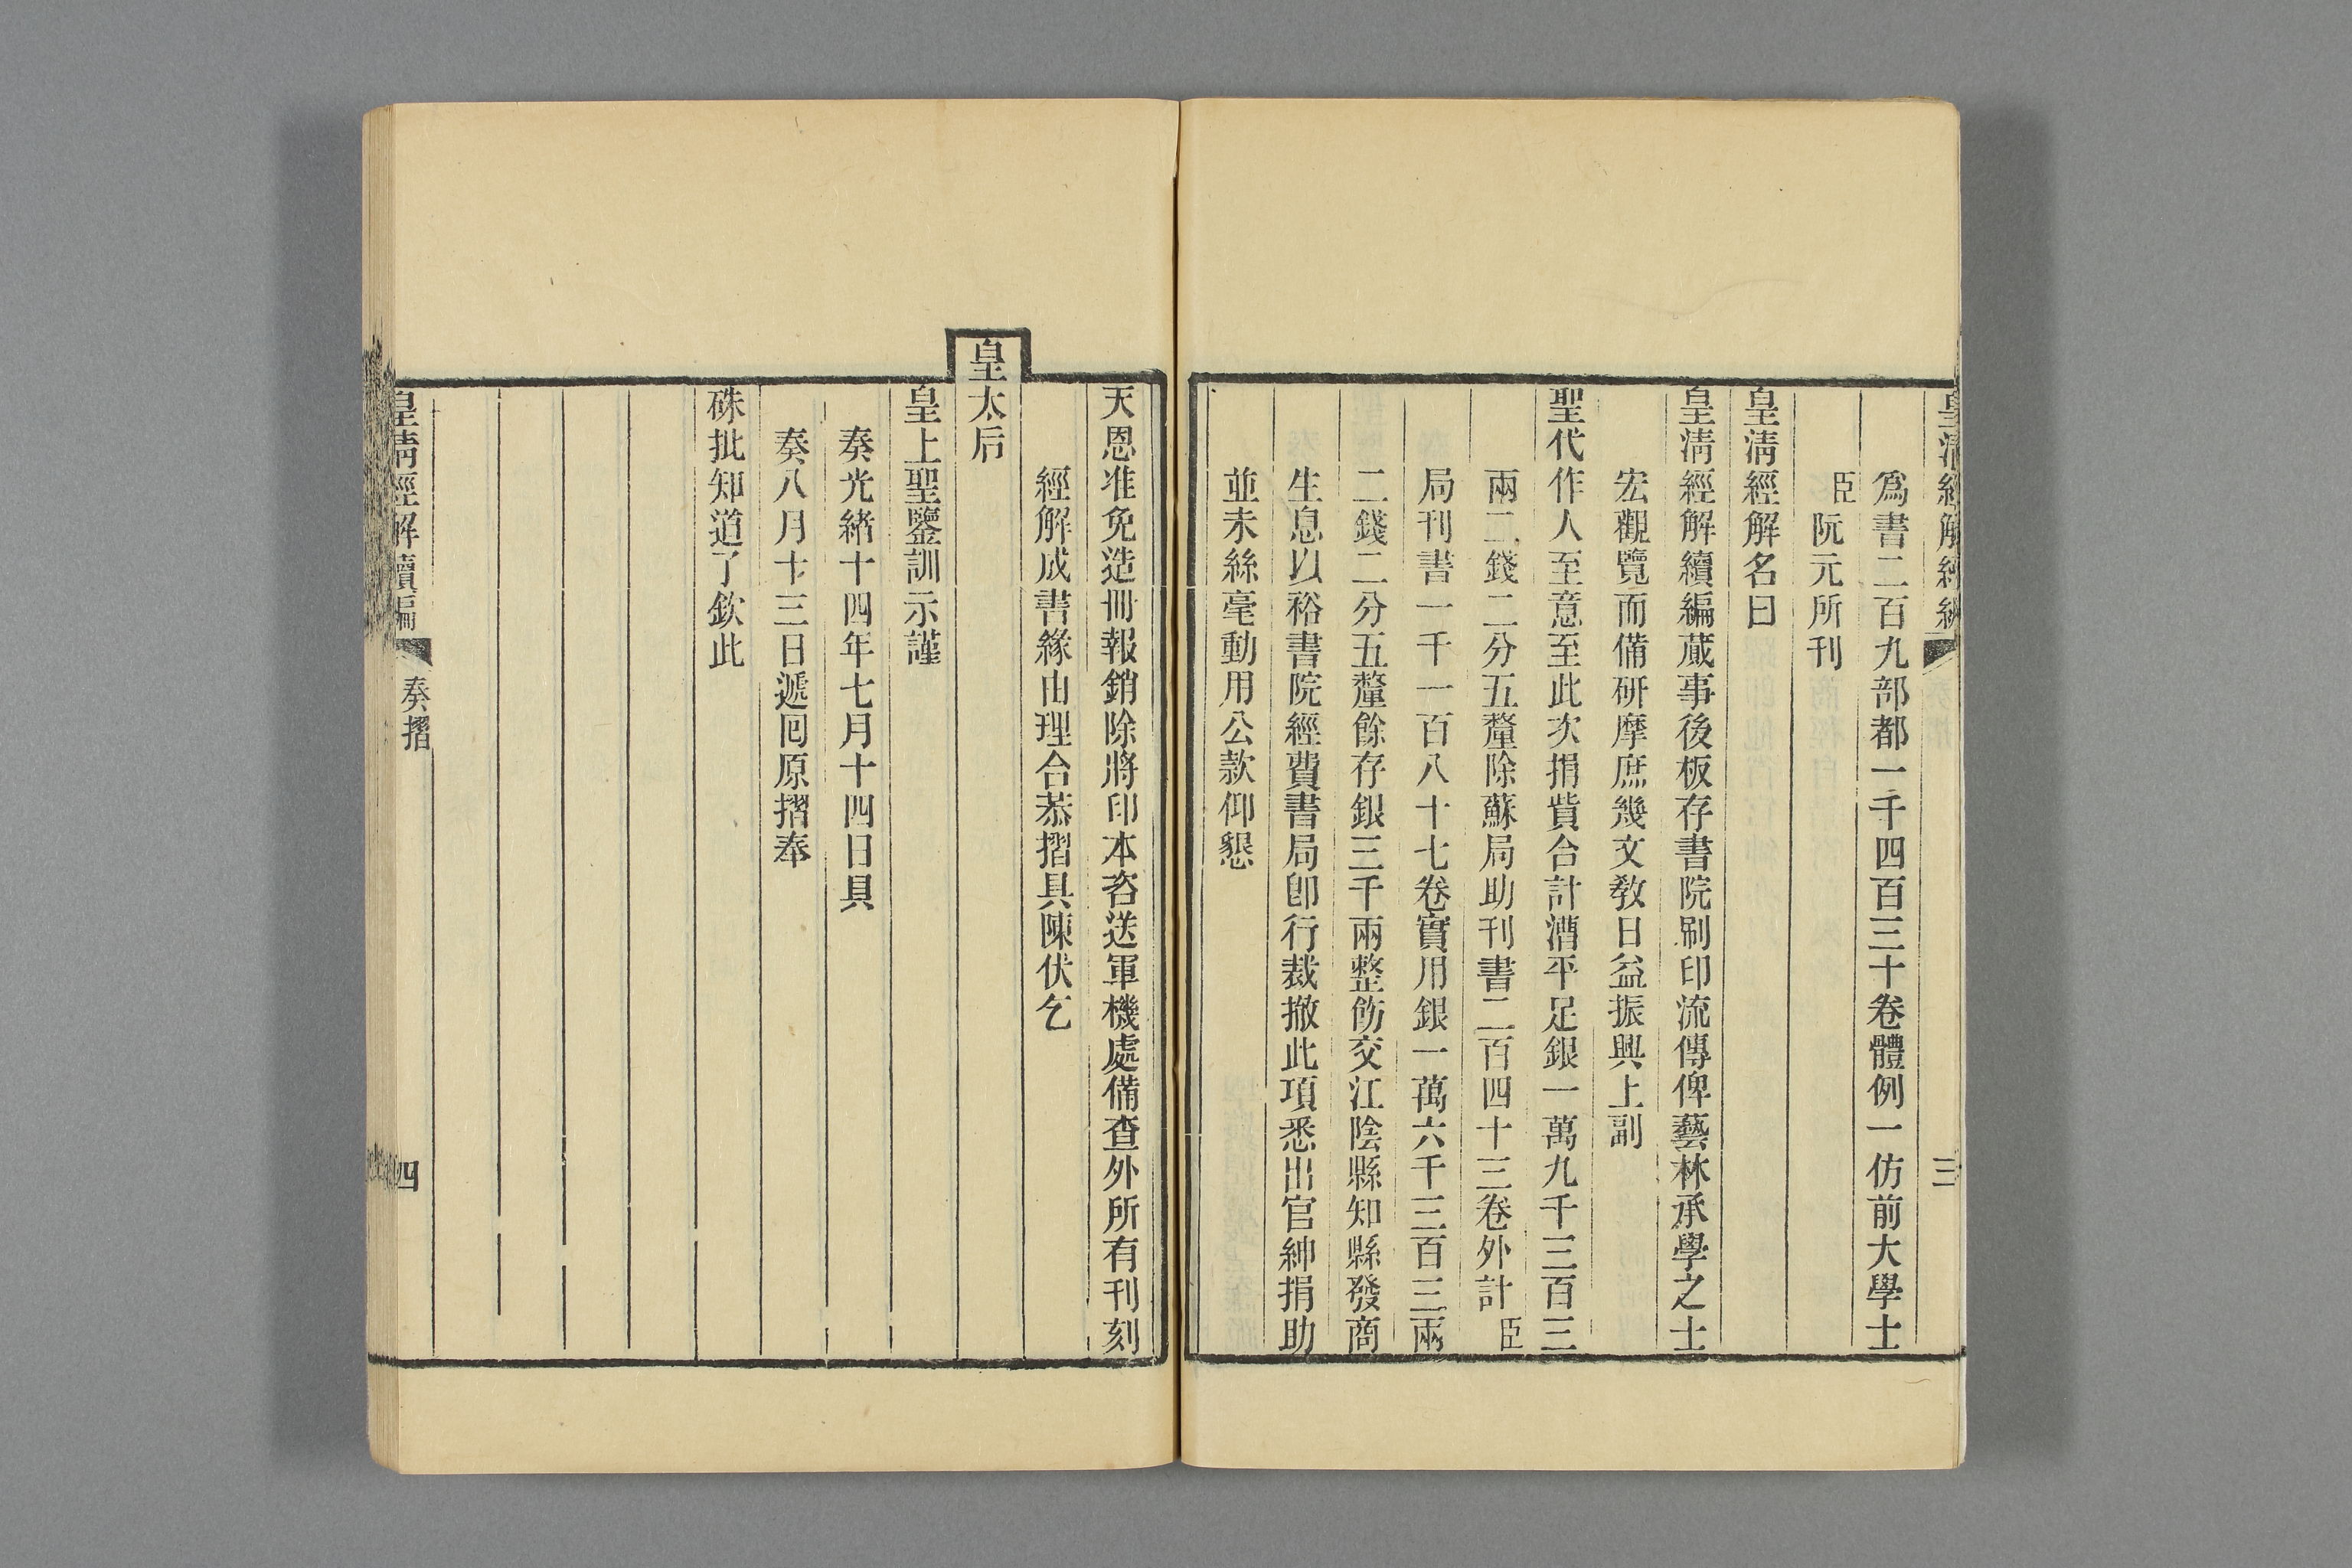 皇清經解續編
三
爲書二百九部都一千四百三十卷體例一仿前大學士
臣阮元所刊
皇淸經解名曰
皇淸經解續編蕆事後板存書院刷印流傳俾藝林承學之士
宏觀覽而備硏摩庶幾文敎日益振興上副
聖代作人至意至此次捐貲合計漕平足銀一萬九千三百三
兩二錢二分五釐除蘇局助刊書二百四十三卷外計臣
局刊書一千一百八十七卷實用銀一萬六千三百三兩
二錢二分五釐餘存銀三千兩整飭交江陰縣知縣發商
生息以裕書院經費書局卽行裁撤此項悉出官紳捐助
並未絲毫動用公款仰懇
天恩准免造冊報銷除將印本咨送軍機處備查外所有刊刻
經解成書緣由理合恭摺具陳伏乞
皇太后
皇上聖鑒訓示謹
奏光緒十四年七月十四日具
奏八月十三日遞囘原摺奉
硃批知道了欽此
皇淸經解續編
奏摺
四